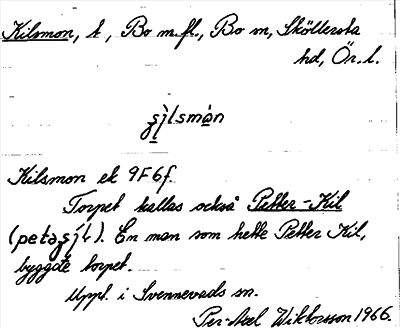 Kilsmon, t, Bo m.fl., Bo sn, Sköllersta
hd, Ör. l.
Kilsmon ek 9F6f.
Torpet kallas också Petter-Kil
En man som hette Petter Kil,
byggde torpet.
Uppl. i Svennevads sn.
Per-Axel Wiktorsson 1966.